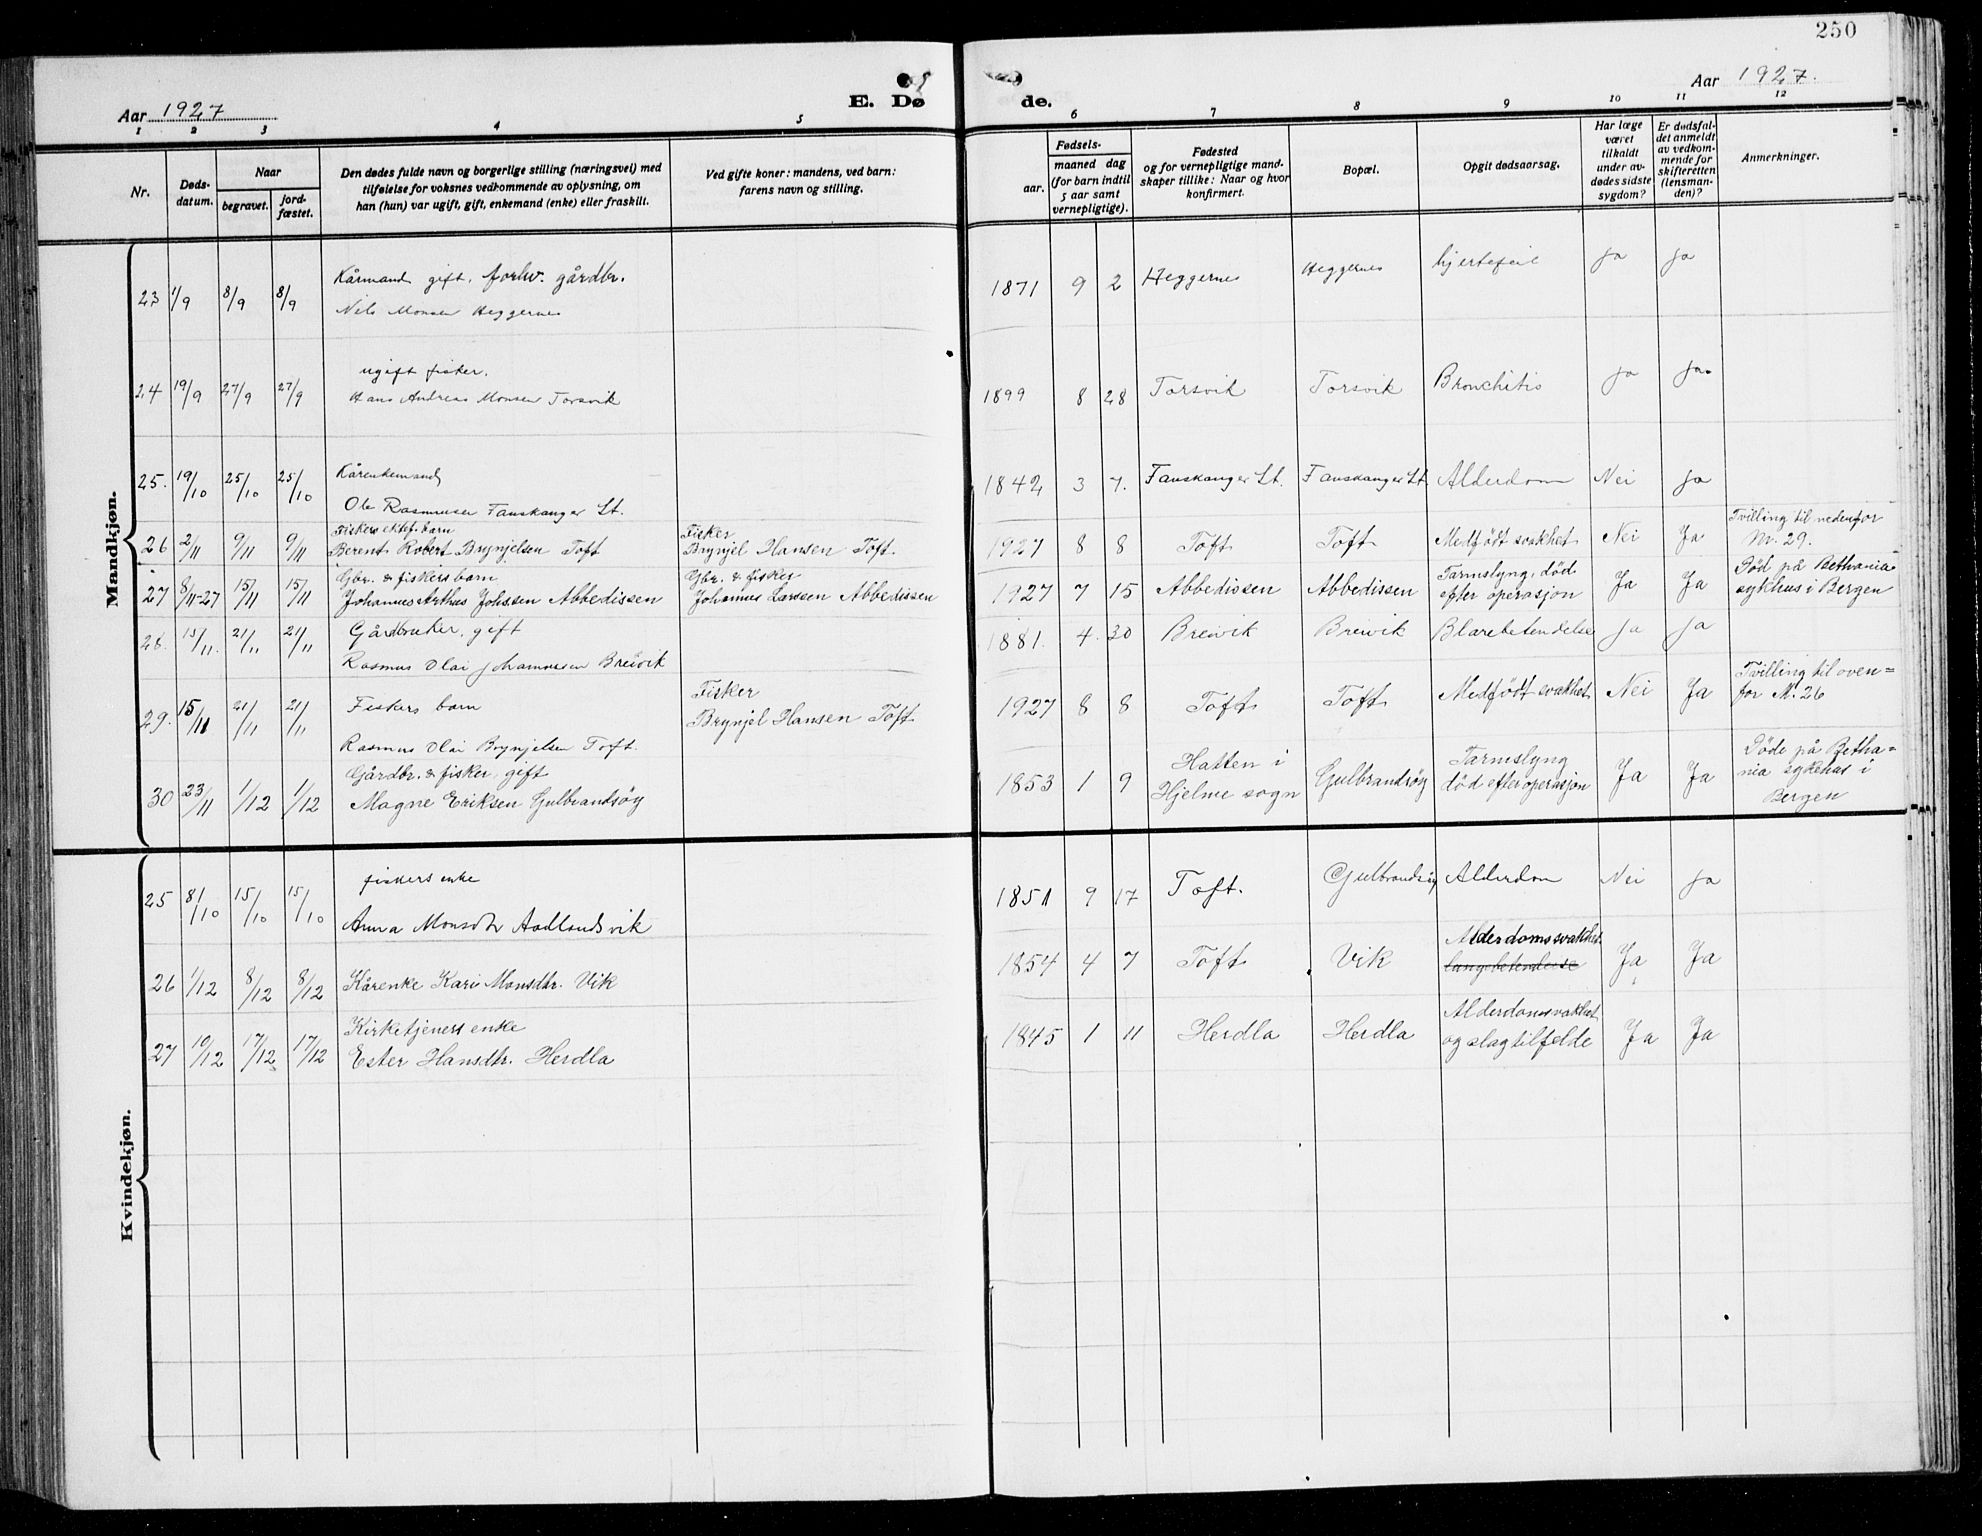 250
Aar 1927
E. Dø
de.
Aar 1927.
1 2 3 4 5 6 7 8 9 10 11 12
Nr.
Døds-
datum.
Naar
begravet.
jord-
fæstet.
Den dødes fulde navn og borgerlige stilling (næringsvei) med
tilføielse for voksnes vedkommende av oplysning, om
han (hun) var ugift, gift, enkemand (enke) eller fraskilt.
Ved gifte koner: mandens, ved barn:
farens navn og stilling.
Fødsels-
aar.
maaned dag
(for barn indtil
5 aar samt
vernepligtige).
Fødested
og for vernepligtige mand-
skaper tillike: Naar og hvor
konfirmert.
Bopæl.
Opgit dødsaarsag.
Har læge
været
tilkaldt
under av-
dødes sidste
sygdom?
Er dødsfal-
det anmeldt
av vedkom-
mende for
skifteretten
(lensman-
den)?
Anmerkninger.
Mandkjøn.
Kårmand gift. forhv. gårdbr.
23 1/9 8/9 8/9 Nils Monsen Heggernes 1871 9 2 Heggernes Heggernes hjertefeil ja ja
ugift fisker.
24 19/9 27/9 27/9 Hans Andreas Monsen Torsvik 1899 8 28 Torsvik Torsvik Bronchitis ja ja.
Kårenkemand
25. 19/10 25/10 25/10 Ole Rasmusen Fauskanger St. 1842 3 7. Fauskanger St. Fauskanger St. Alderdom Nei ja
Fiskers barn Fisker Tvilling til nedenfor
26 2/11 9/11 9/11 Berent Robert Brynjelsen Toft Brynjel Hansen Toft. 1927 8 8 Toft Toft Medfödt svakhet Nei Ja Nr. 29.
Gbr. & fiskers barn Gbr. & fisker Tarmslyng, död Död på Bethania
27 8/11-27 15/11 15/11 Johannes Arthus Johssen Abbedissen Johannes Larssen Abbedissen 1927 7 15 Abbedissen Abbedissen efter operasjon Ja Ja sykhus i Bergen
Gårdbruker, gift
28. 15/11. 21/11 21/11 Rasmus Olai Johannesen Breivik 1881. 4. 30 Breivik Breivik Blærebetendelse ja ja
Fiskers barn Fisker Tvilling til oven=
29. 15/11 21/11 21/11 Rasmus Olai Brynjelsen Toft. Brynjel Hansen Toft 1927 8 8 Toft Toft Medfödt svakhet Nei Ja for N. 26
Gårdbr. & fisker, gift Hatten i Tarmslyng Döde på Betha=
30 23/11 1/12 1/12 Magne Eriksen Gulbrandsöy 1853 1 9 Hjelme sogn Gulbrandsöy död efter operasjon Ja Ja nia sykehus i
Bergen
Kvindekjøn.
fiskers enke
25 8/10 15/10 15/10 Anna Monsdtr Aadlandsvik 1851 9 17 Toft. Gulbrandsöy Alderdom Nei ja
Alderdomssvakhet.
26 1/12 8/12 8/12 Kårenke Kari Monsdtr. Vik 1854 4 7 Toft Vik lungebetendelse Ja Ja
Kirketjeners enke Alderdomssvakhet
27 10/12 17/12 17/12 Ester Hansdtr. Herdla 1845 1 11 Herdla Herdla og slagtilfelde Ja Ja